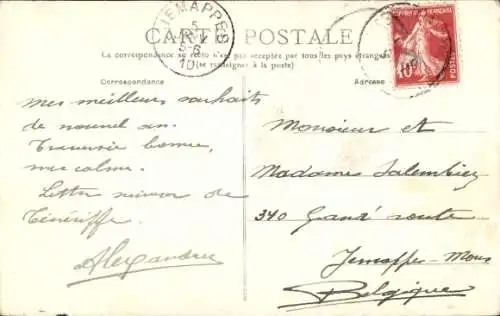 JEMAPPES
5
5-6
10
CARTE POSTALE
La correspondance au recto n'est pas acceptée par tous les pays étrangers
(se renseigner à la poste)
Correspondance
Adresse
10c
POSTES
Mes meilleurs souhaits
de nouvel an.
Traversée bonne,
mer calme.
Lettre suivra de
Ténériffe.
Alexandre
Monsieur et
Madame Salembiez
340 Grand'route
Jemappes-Mons
Belgique